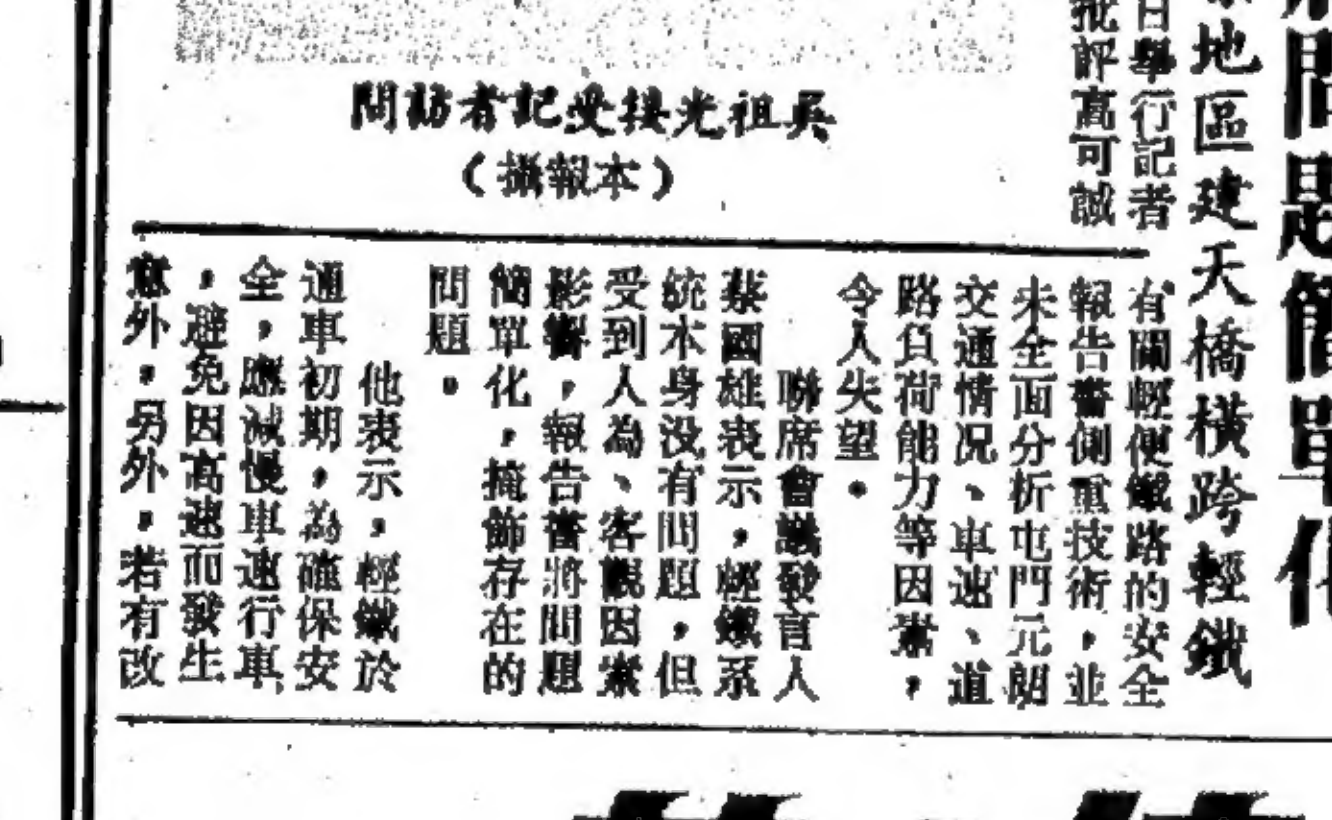 問題簡單化
地區建天橋橫跨輕鐵
日舉行記者
批評高可誠
吳祖光接受記者訪問
（本報攝）
有關輕便鐵路的安全
報告書側重技術，並
未全面分析屯門元朗
交通情况、車速、道
路負荷能力等因素，
令人失望。
聯席會議發言人
蔡國雄表示，輕鐵系
統本身没有問題，但
受到人為、客觀因素
影響，報告書將問題
簡單化，掩飾存在的
問題。
他表示，輕鐵於
通車初期，為確保安
全，應減慢車速行車
，避免因高速而發生
意外，另外，若有改